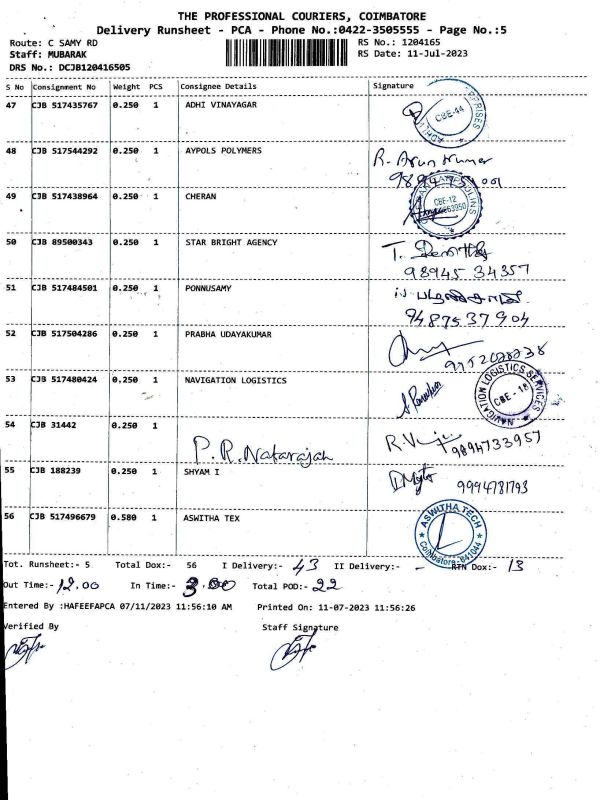 THE PROFESSIONAL COURIERS, COIMBATORE
Delivery Runsheet - PCA - Phone No.:0422-3505555 - Page No.:5
Route: C SAMY RD RS No.: 1204165
Staff: MUBARAK RS Date: 11-Jul-2023
DRS No.: DCJB120416505
S No Consignment No Weight PCS Consignee Details Signature
47 CJB 517435767 0.250 1 ADHI VINAYAGAR CBE-44
48 CJB 517544292 0.250 1 AYPOLS POLYMERS R. Arun Kumar
49 CJB 517438964 0.250 1 CHERAN CBE-12
50 CJB 89500343 0.250 1 STAR BRIGHT AGENCY T.
98945 34357
51 CJB 517484501 0.250 1 PONNUSAMY
94875 37904
52 CJB 517504286 0.250 1 PRABHA UDAYAKUMAR
53 CJB 517480424 0.250 1 NAVIGATION LOGISTICS NAVIGATION LOGISTICS SERVICES CBE - 18
54 CJB 31442 0.250 1 P.R.Natarajan
9894733957
55 CJB 188239 0.250 1 SHYAM I
9994781793
56 CJB 517496679 0.580 1 ASWITHA TEX ASWITHA TECH Coimbatore-641044
Tot. Runsheet:- 5 Total Dox:- 56 I Delivery:- 43 II Delivery:- - RTN Dox:- 13
Out Time:- 12.00 In Time:- 3.00 Total POD:- 22
Entered By :HAFEEFAPCA 07/11/2023 11:56:10 AM Printed On: 11-07-2023 11:56:26
Verified By Staff Signature